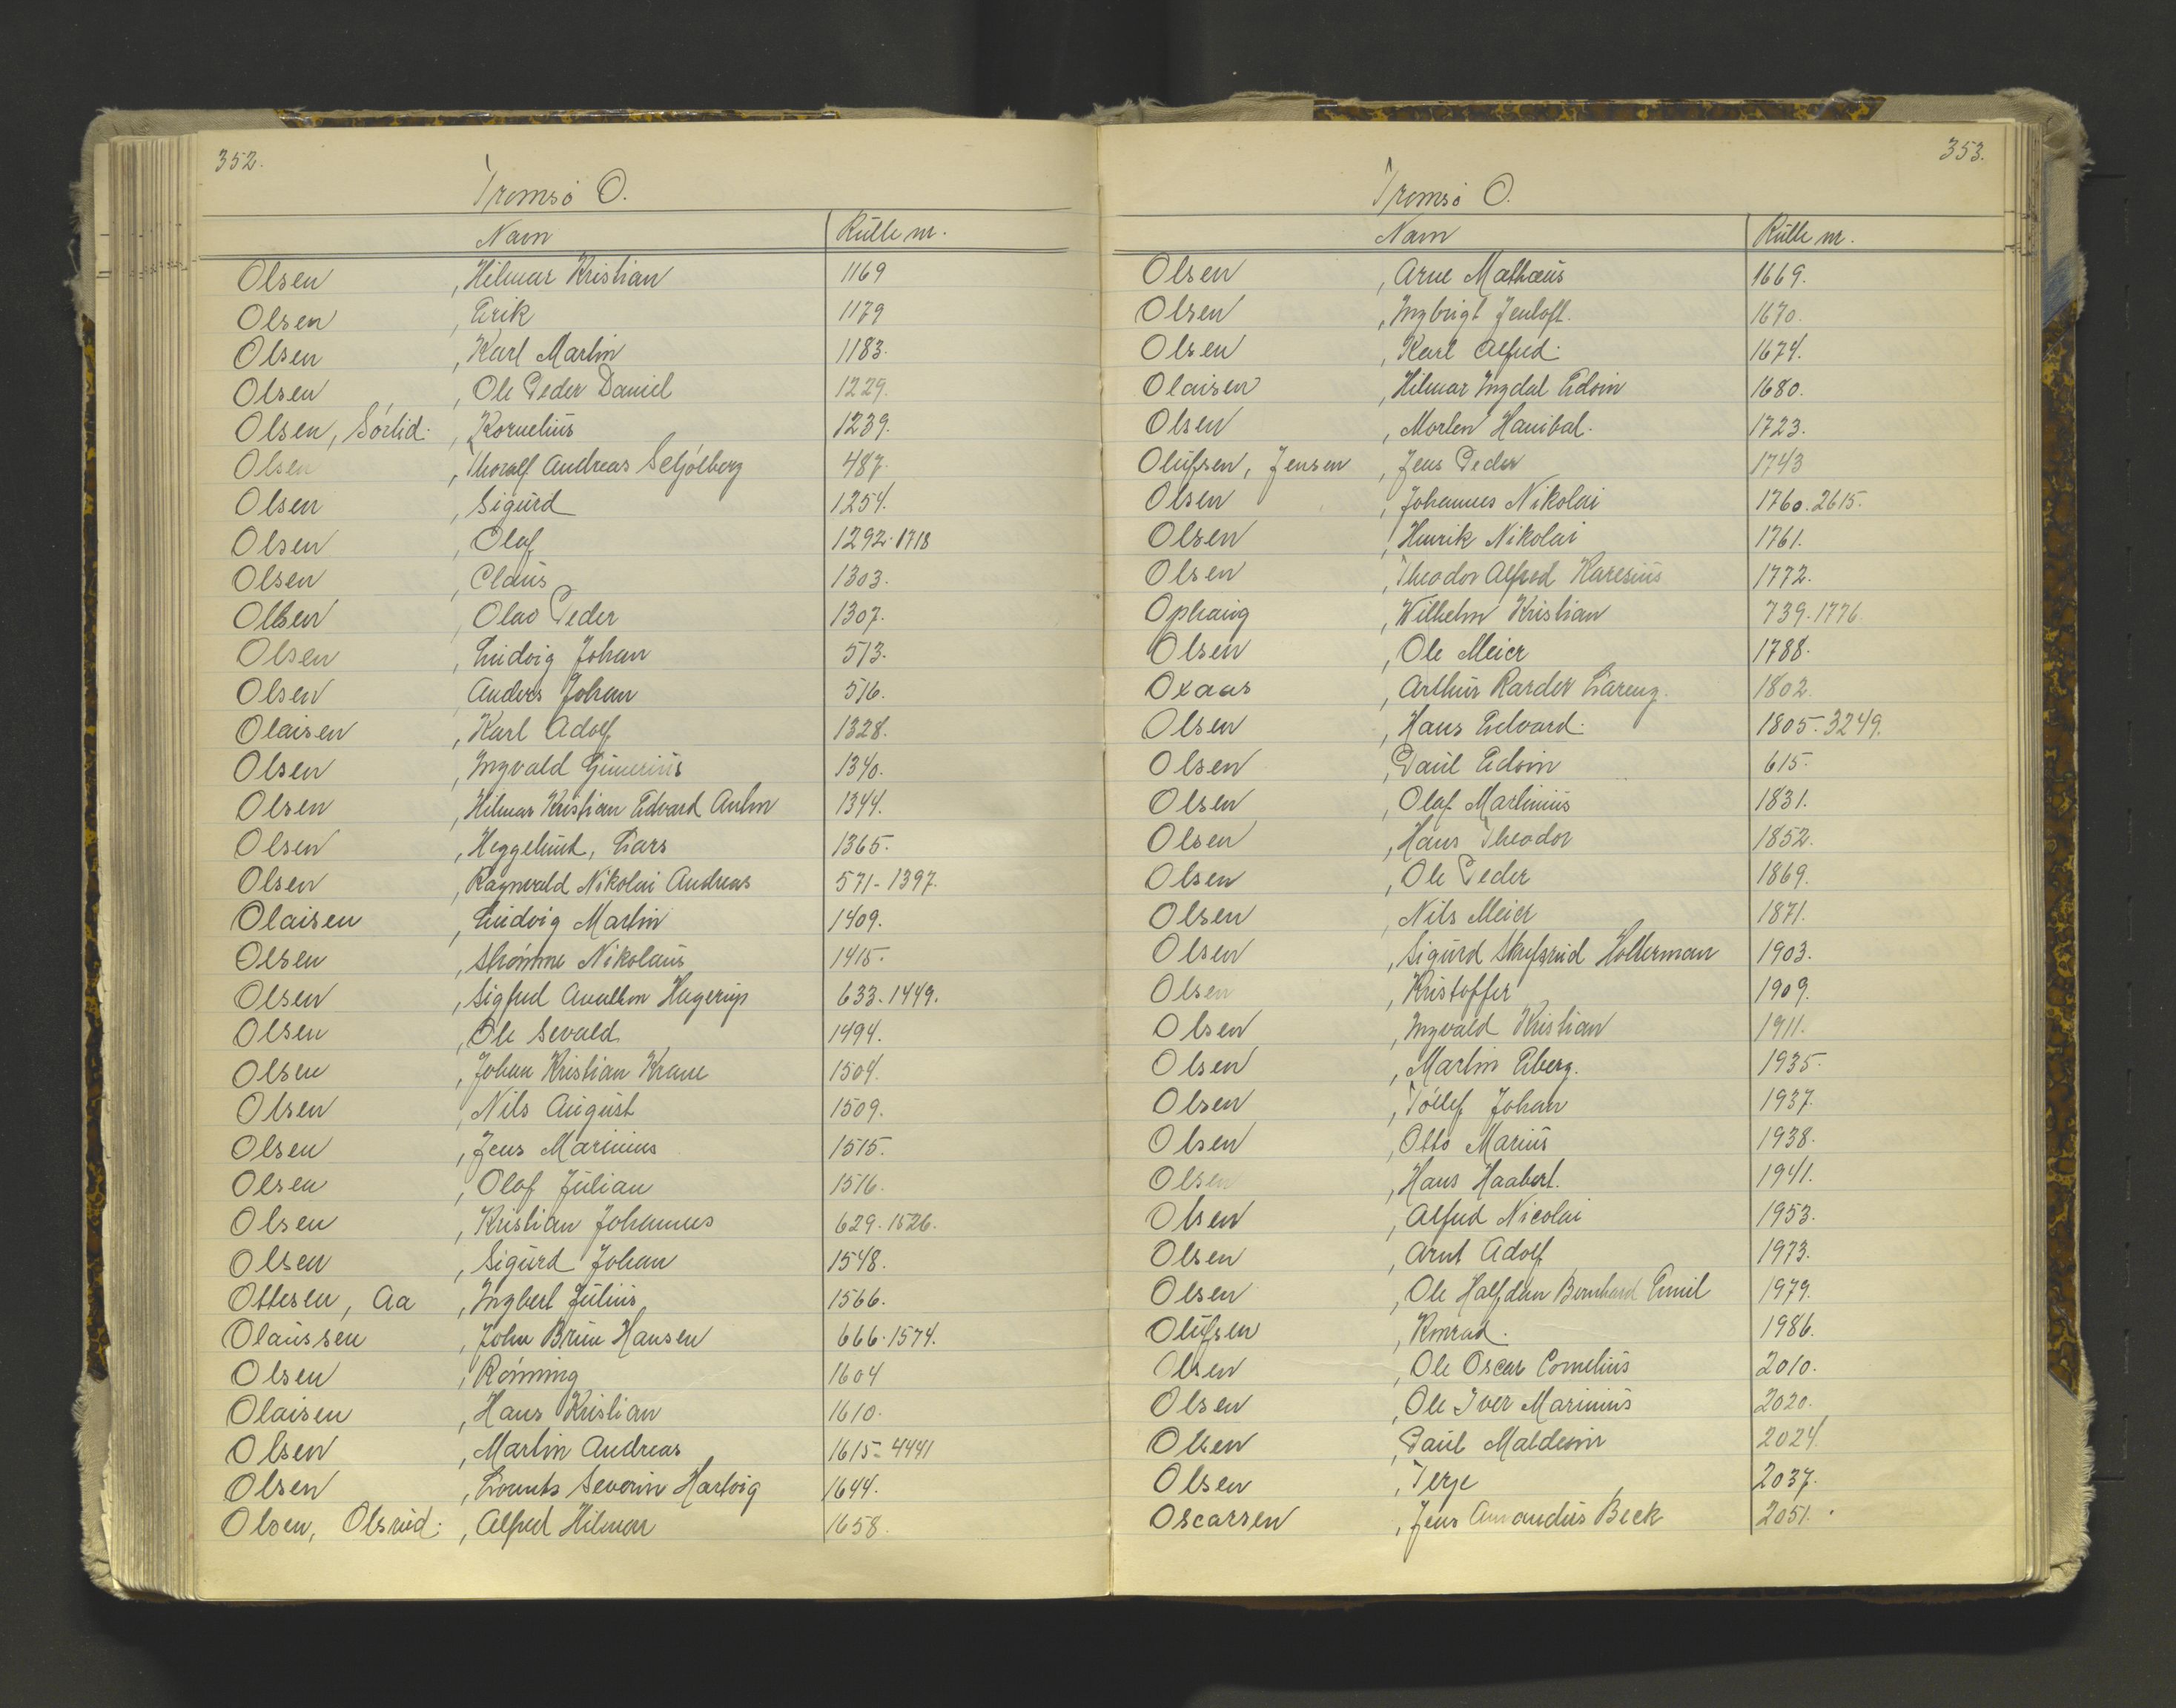 352.
Tromsö O.
Navn
Rulle nr.
Olsen , Hilmar Kristian 1169
Olsen , Erik 1179
Olsen , Karl Martin 1183.
Olsen , Ole Peder Daniel 1229.
Olsen, Sörlid. , Kornelius 1239.
Olsen , Thoralf Andreas Seljólberg 487.
Olsen , Sigurd 1254.
Olsen , Olaf 1292.1718
Olsen , Claus 1303.
Olsen , Olav Peder 1307.
Olsen , Ludvig Johan 513.
Olsen Anders Johan 516.
Olaisen , Karl Adolf 1328.
Olsen , Ingvald 1340.
Olsen , Hilmar Kristian Edvard 1344.
Olsen , Heggelund, Lars 1365.
Olsen , Ragnvald Nikolai Andreas 571-1397.
Olaisen , Ludvig Martin 1409.
Olsen , Nikolaus 1415.
Olsen , Sigfred Hagerup 633.1449.
Olsen , Ole Sevald 1494.
Olsen , Johan Kristian Krane 1504.
Olsen , Nils August 1509.
Olsen , Jens Marinius 1515.
Olsen , Olaf Julian 1516.
Olsen , Kristian Johannes 629.1526.
Olsen , Sigurd Johan 1548.
Ottesen, Aa , Ingbert Julius 1566.
Olaussen , John Brun Hansen 666.1574.
Olsen , Rönning 1604
Olaisen , Hans Kristian 1610.
Olsen , Martin Andreas 1615-4441
Olsen , Lorents Severin Hartvig 1644.
Olsen, Olsrud. , Alfred Hilmar 1658.
353.
Tromsö O.
Navn
Rulle nr.
Olsen , Arne Mathæus 1669.
Olsen , Ingbrigt Jentoft. 1670.
Olsen , Karl Alfred. 1674.
Olaisen , Hilmar Ingdal Edvin 1680.
Olsen , Morten Hanibal. 1723.
Olufsen, Jensen , Jens Peder 1743
Olsen , Johannes Nikolai 1760.2615.
Olsen , Henrik Nikolai 1761.
Olsen , Theodor Alfred Karesius 1772.
Ophaug , Wilhelm Kristian 739.1776.
Olsen , Ole Meier 1788.
Oxaas , Arthur Rarder Lareng. 1802.
Olsen , Hans Edvard. 1805.3249.
Olsen , Paul Edvin 615.
Olsen , Olaf Martinius 1831.
Olsen , Hans Theodor 1852.
Olsen , Ole Peder 1869.
Olsen , Nils Meier 1871.
Olsen , Sigurd Skrefsrud Holterman 1903.
Olsen , Kristoffer 1909.
Olsen , Ingvald Kristian 1911.
Olsen , Martin Eberg. 1935.
Olsen , Tóllef Johan 1937.
Olsen , Otto Marius 1938.
Olsen , Hans Haabert. 1941.
Olsen , Alfred Nicolai 1953.
Olsen , Arnt Adolf 1973.
Olsen , Ole Halfdan Bernhard Emil 1979.
Olufsen , Konrad. 1986.
Olsen , Ole Oscar Cornelius 2010.
Olsen , Ole Iver Marinius 2020.
Olsen , Paul Maldemir 2024.
Olsen , Terje 2037.
Oscarsen , Jens Amandus Beck 2051.